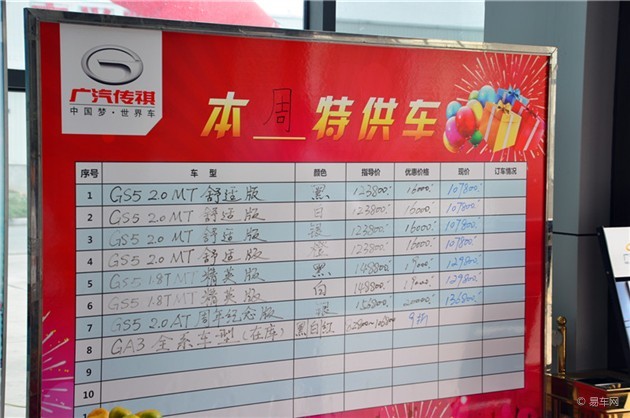 广汽传祺
中国梦·世界车
本周特供车
序号 车 型 颜色 指导价 优惠价格 现价 订车情况
1 GS5 2.0 MT 舒适版 黑 123800 16000 107800
2 GS5 2.0 MT 舒适版 白 123800 16000 107800
3 GS5 2.0 MT 舒适版 银 123800 16000 107800
4 GS5 2.0 MT 舒适版 橙 123800 16000 107800
5 GS5 1.8T MT 精英版 黑 148800 19000 129800
6 GS5 1.8T MT 精英版 白 148800 19000 129800
7 GS5 2.0 AT 周年纪念版 156800 20000 136800
8 GA3 全系车型(在库) 黑白红 9折
9
10
© 易车网